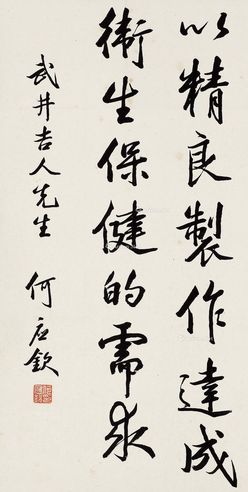 以精良製作達成
衛生保健的需求
武井吉人先生
何应欽